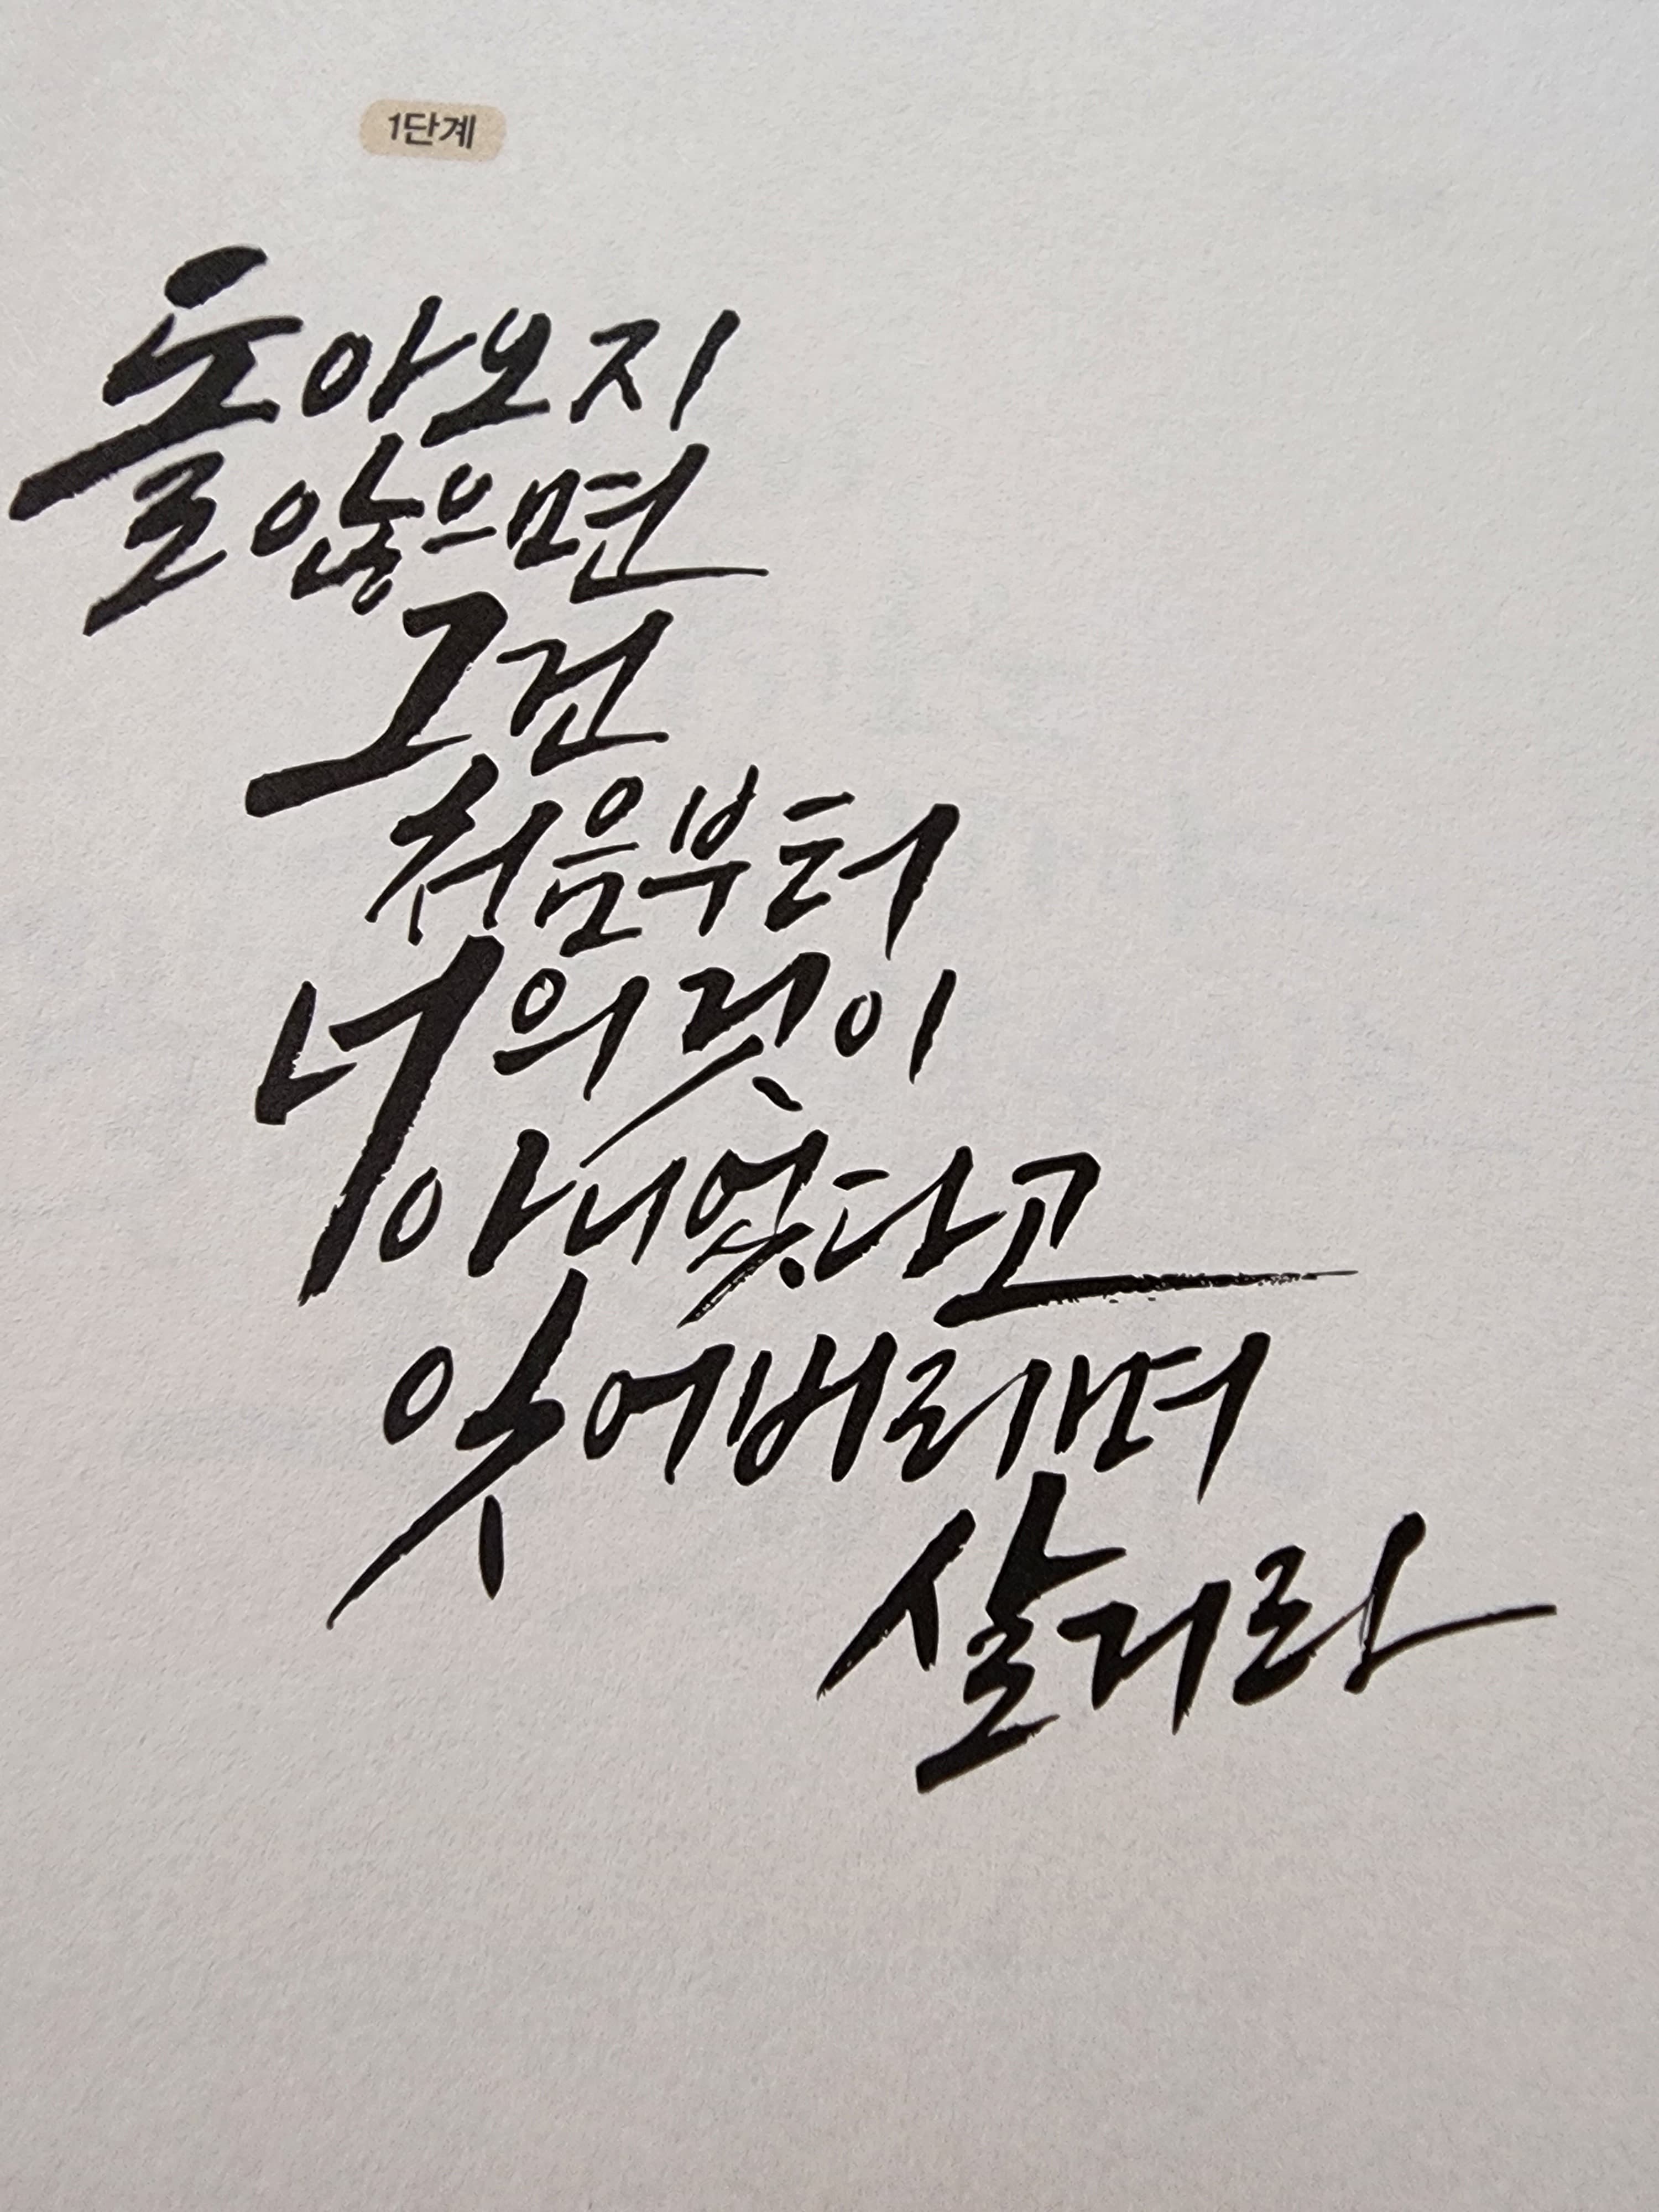 1단계
돌아오지
않으면
그건
처음부터
너의 것이
아니었다고
잊어버리며
살거라